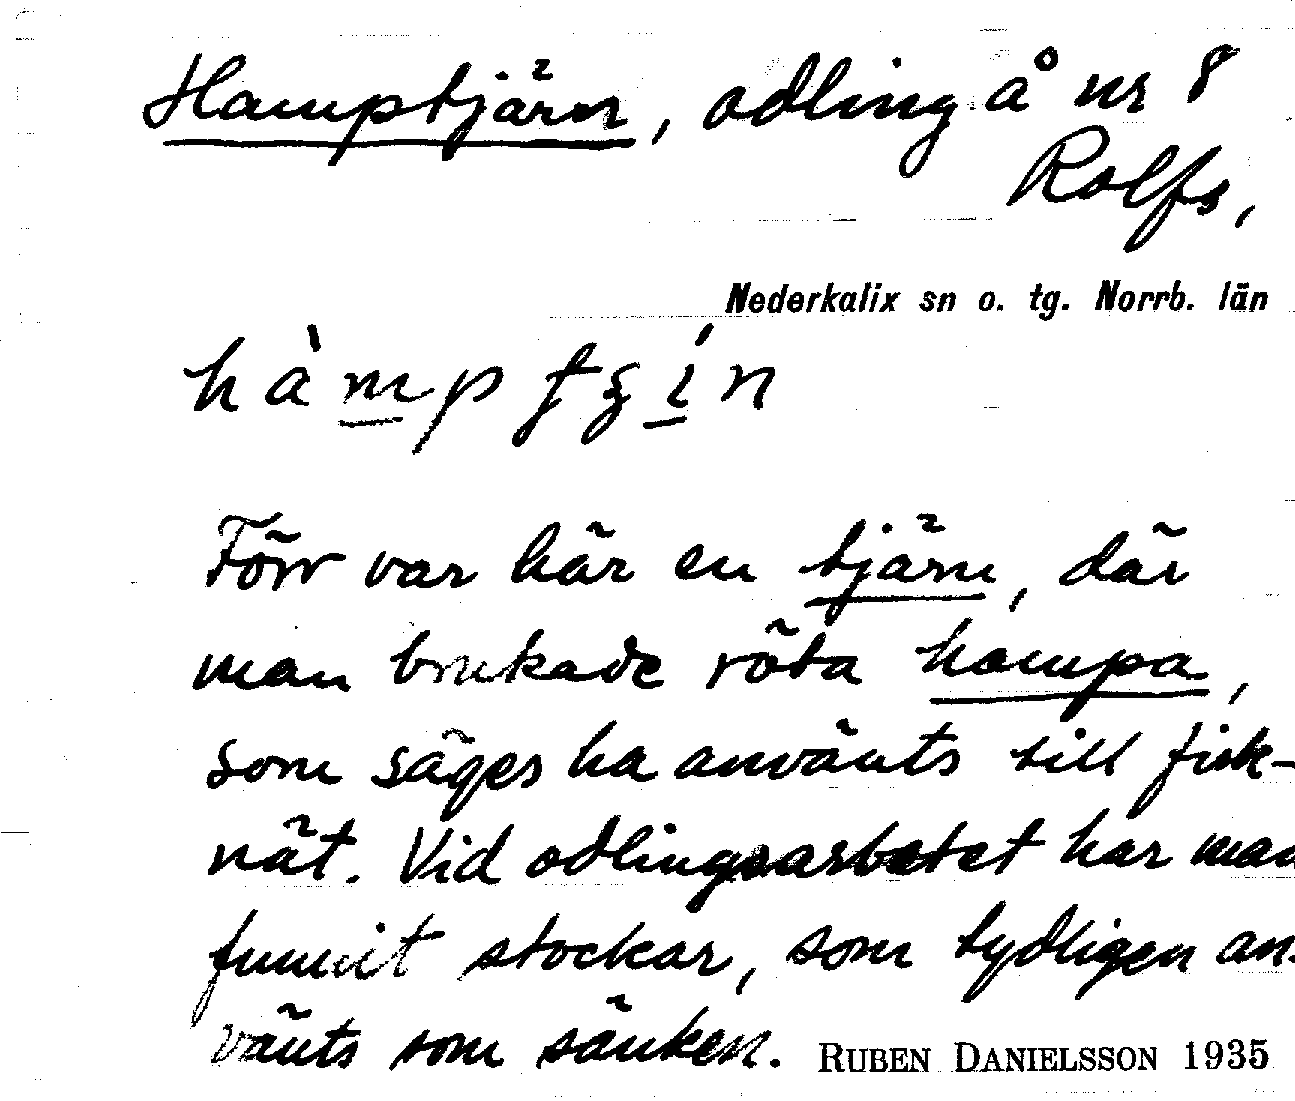 Hamptjärn, odling å nr 8
Rolfs,
Nederkalix sn o. tg. Norrb. län
Förr var här en tjärn, där
man brukade röta hampa,
som säges ha använts till fisk-
nät. Vid odlingsarbetet har man
funnit stockar, som tydligen an-
vänts som sänken. RUBEN DANIELSSON 1935